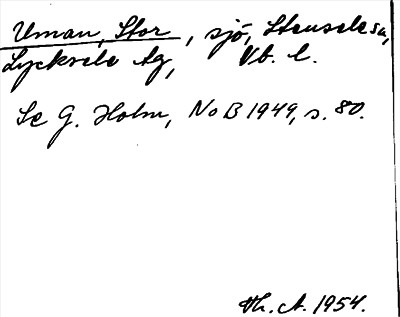 Uman, Stor, sjö, Stensele sn,
Lycksele tg, Vb. l.
Se G. Holm, NoB 1949, s. 80.
Th. A. 1954.